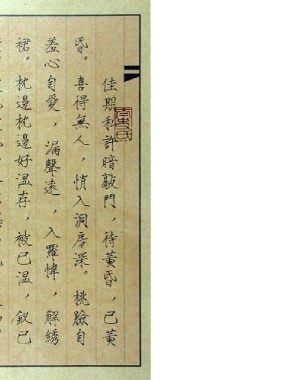 佳期私許暗敲門，待黃昏，已黃
昏。喜得無人，悄入洞房深。桃臉自
羞心自愛，漏聲遠，入羅幃，解綉
裙。枕邊枕邊好溫存，被已溫，釵已